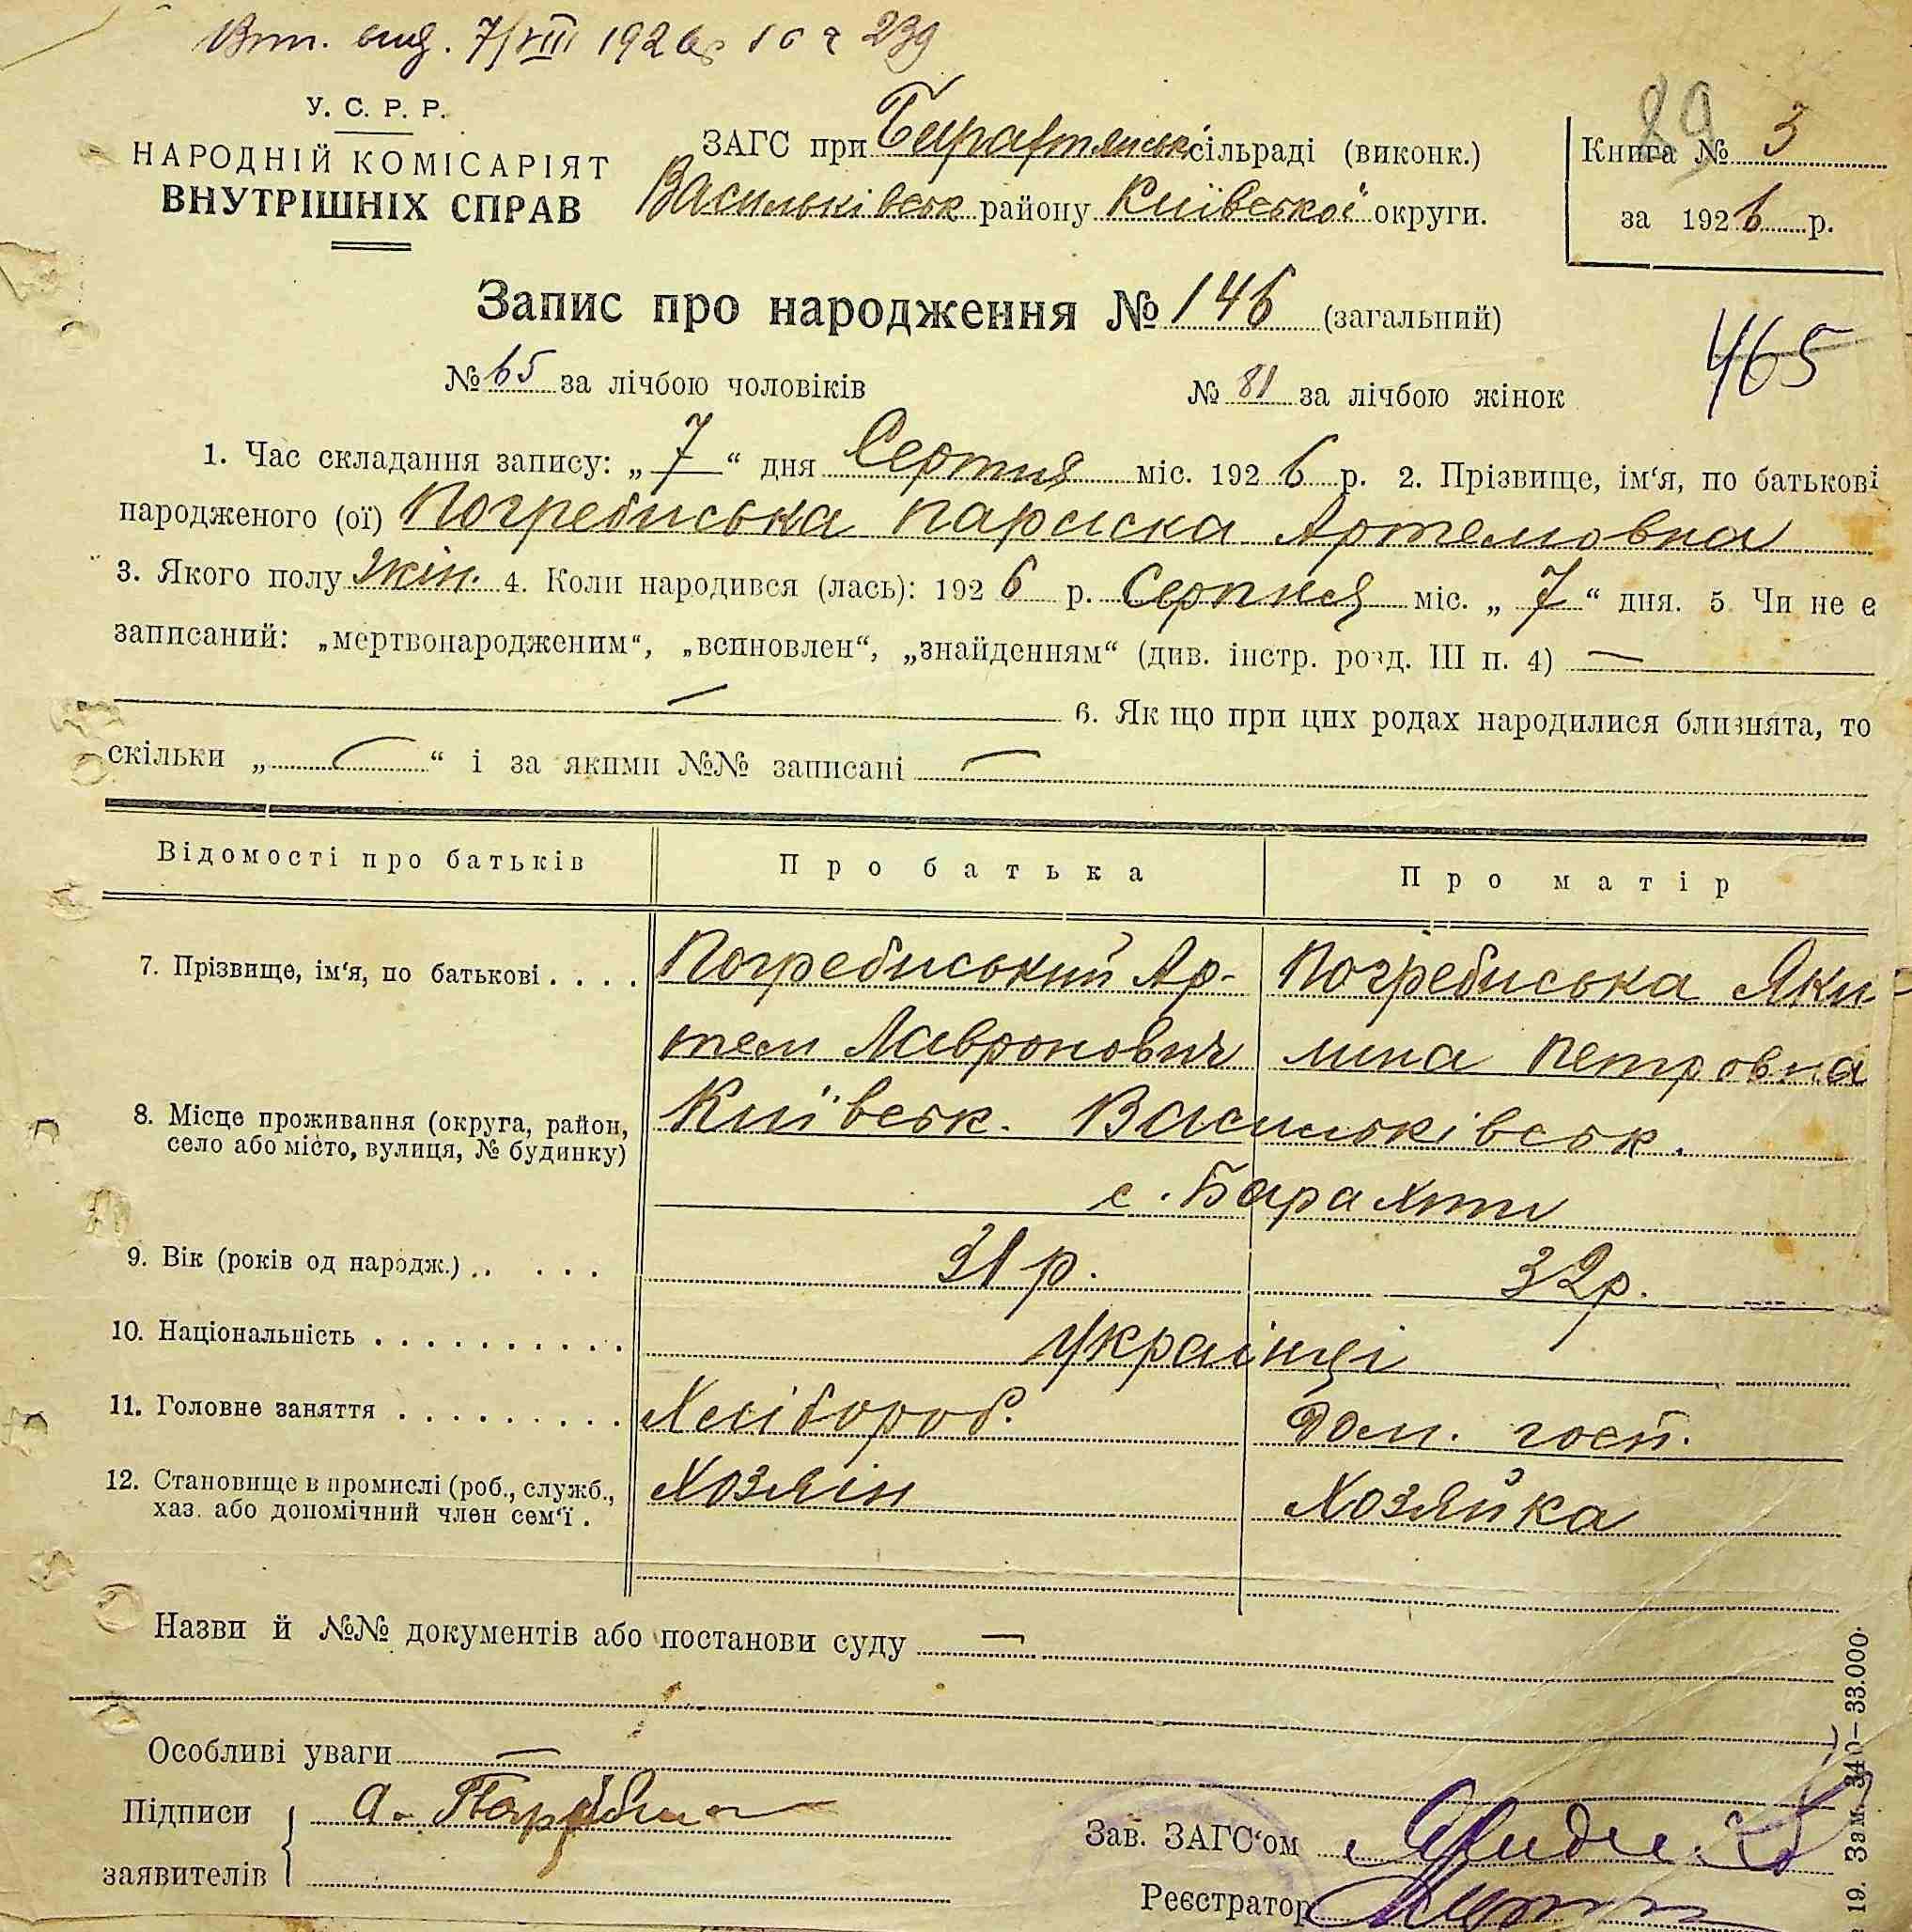 7/VIII 1926 239
У. С. Р. Р.
НАРОДНІЙ КОМІСАРІЯТ
ВНУТРІШНІХ СПРАВ
ЗАГС при Барахтянськ сільраді (виконк.)
Васильківськ району Київської округи.
89
Книга № 3
за 1926 р.
Запис про народження № 146 (загальний)
465
№ 65 за лічбою чоловіків № 81 за лічбою жінок
1. Час складання запису: „7“ дня Серпня міс. 1926 р. 2. Прізвище, ім‘я, по батькові
народженого (ої) Погребиська Параска Артемовна
3. Якого полу жін. 4. Коли народився (лась): 1926 р. Серпня міс. „7“ дня. 5 Чи не є
записаний: „мертвонародженим“, „всиновлен“, „знайденням“ (див. інстр. розд. III п. 4) —
— 6. Як що при цих родах народилися близнята, то
скільки „—“ і за якими №№ записані —
Відомості про батьків Про батька Про матір
7. Прізвище, ім‘я, по батькові . . . . Погребиський Ар- Погребиська Яки-
тем Лавронович мина Петровна
8. Місце проживання (округа, район,
село або місто, вулиця, № будинку)
Київськ. Васильківськ.
с. Барахти
9. Вік (років од народж.) . . . . . 31 р. 32 р.
10. Національність . . . . . . . . . . українці
11. Головне заняття . . . . . . . . . Хлібороб. Дом. госп.
12. Становище в промислі (роб., служб.,
хаз. або допомічний член сем‘ї .
Хозяін Хозяйка
Назви й №№ документів або постанови суду —
Особливі уваги —
Підписи
заявителів
Зав. ЗАГС‘ом
Реєстратор
19. Зам. 340—33.000.